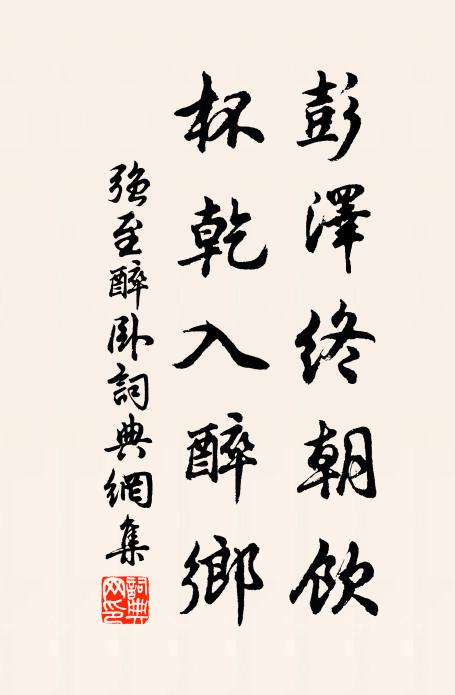 彭澤終朝飲
杯乾入醉鄉
強至醉卧詞典網集
詞典网印